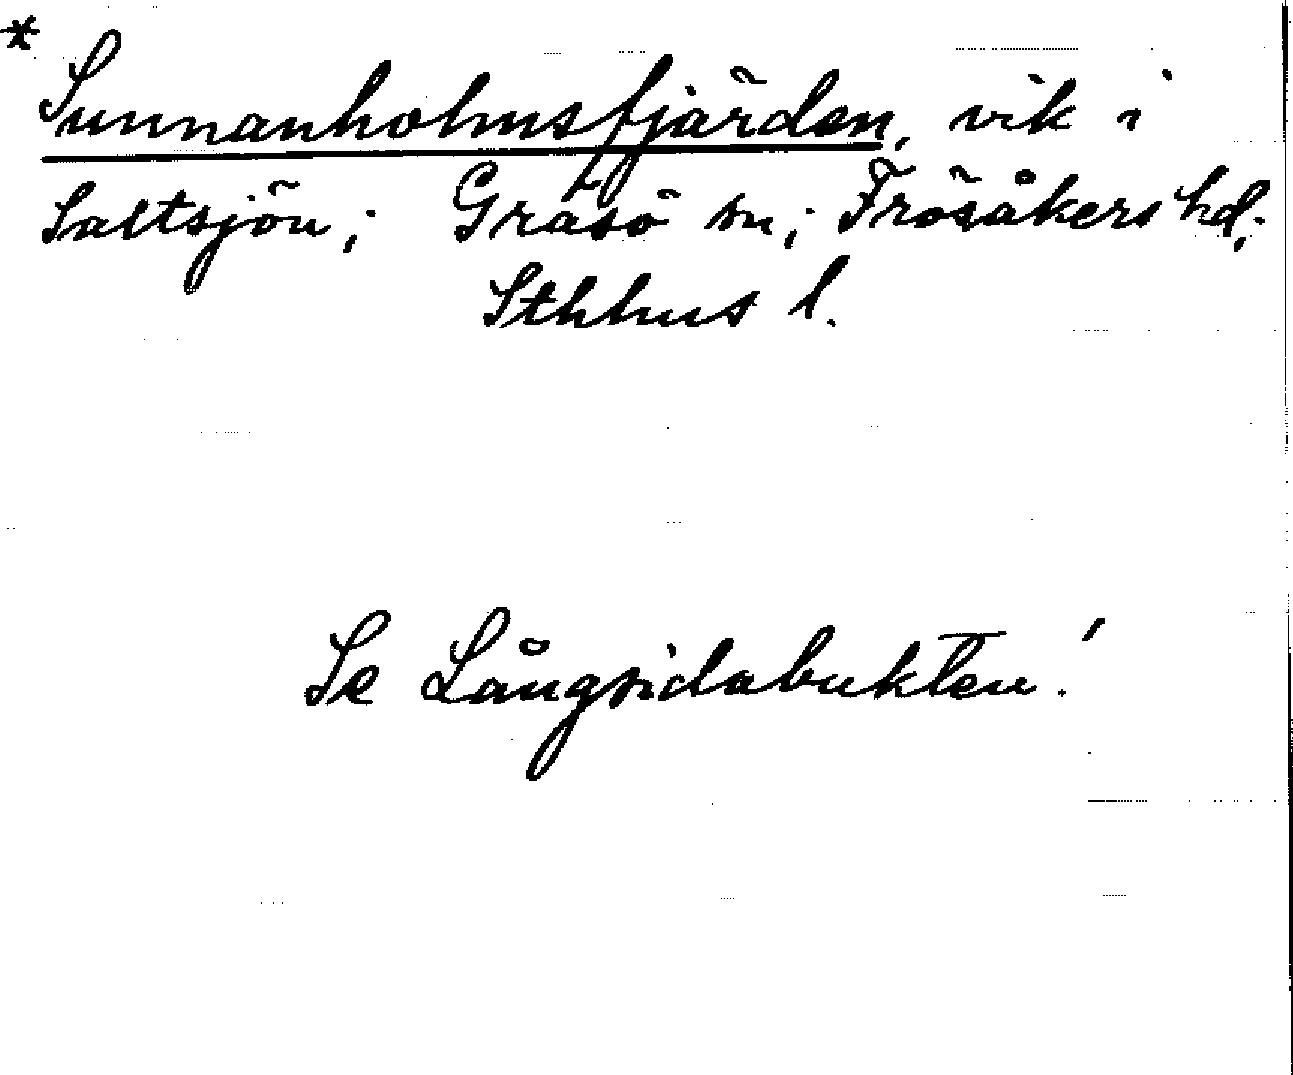 * Sunnanholmsfjärden, vik i
Saltsjön; Gräsö sn; Frösåkers hd;
Sthlms l.
Se Långsidabukten!